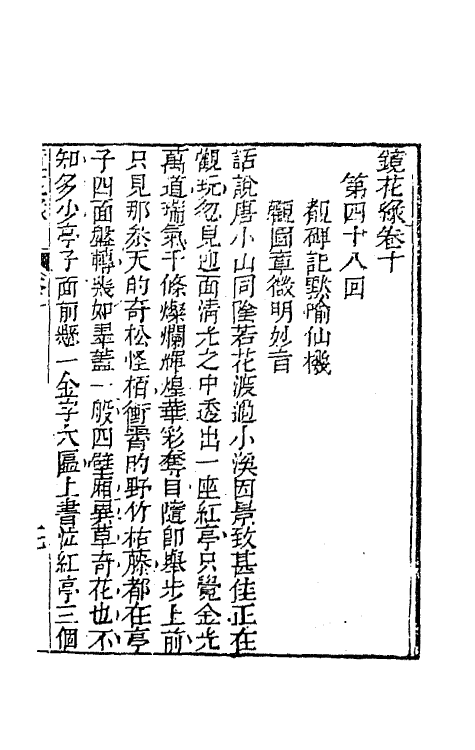 鏡花緣卷十
第四十八回
觀碑記默喻仙機
觀圖章微明妙旨
話說唐小山同陰若花渡過小溪因景致甚佳正在
觀玩忽見迎面清光之中透出一座紅亭只覺金光
萬道瑞氣千條燦爛輝煌華彩奪目隨即舉步上前
只見那叅天的奇松怪栢衝霄的野竹枯藤都在亭
子四面盤轉裝如羣蓋一般四壁廂異草奇花也不
知多少亭子面前懸一金字大匾上書泣紅亭三個